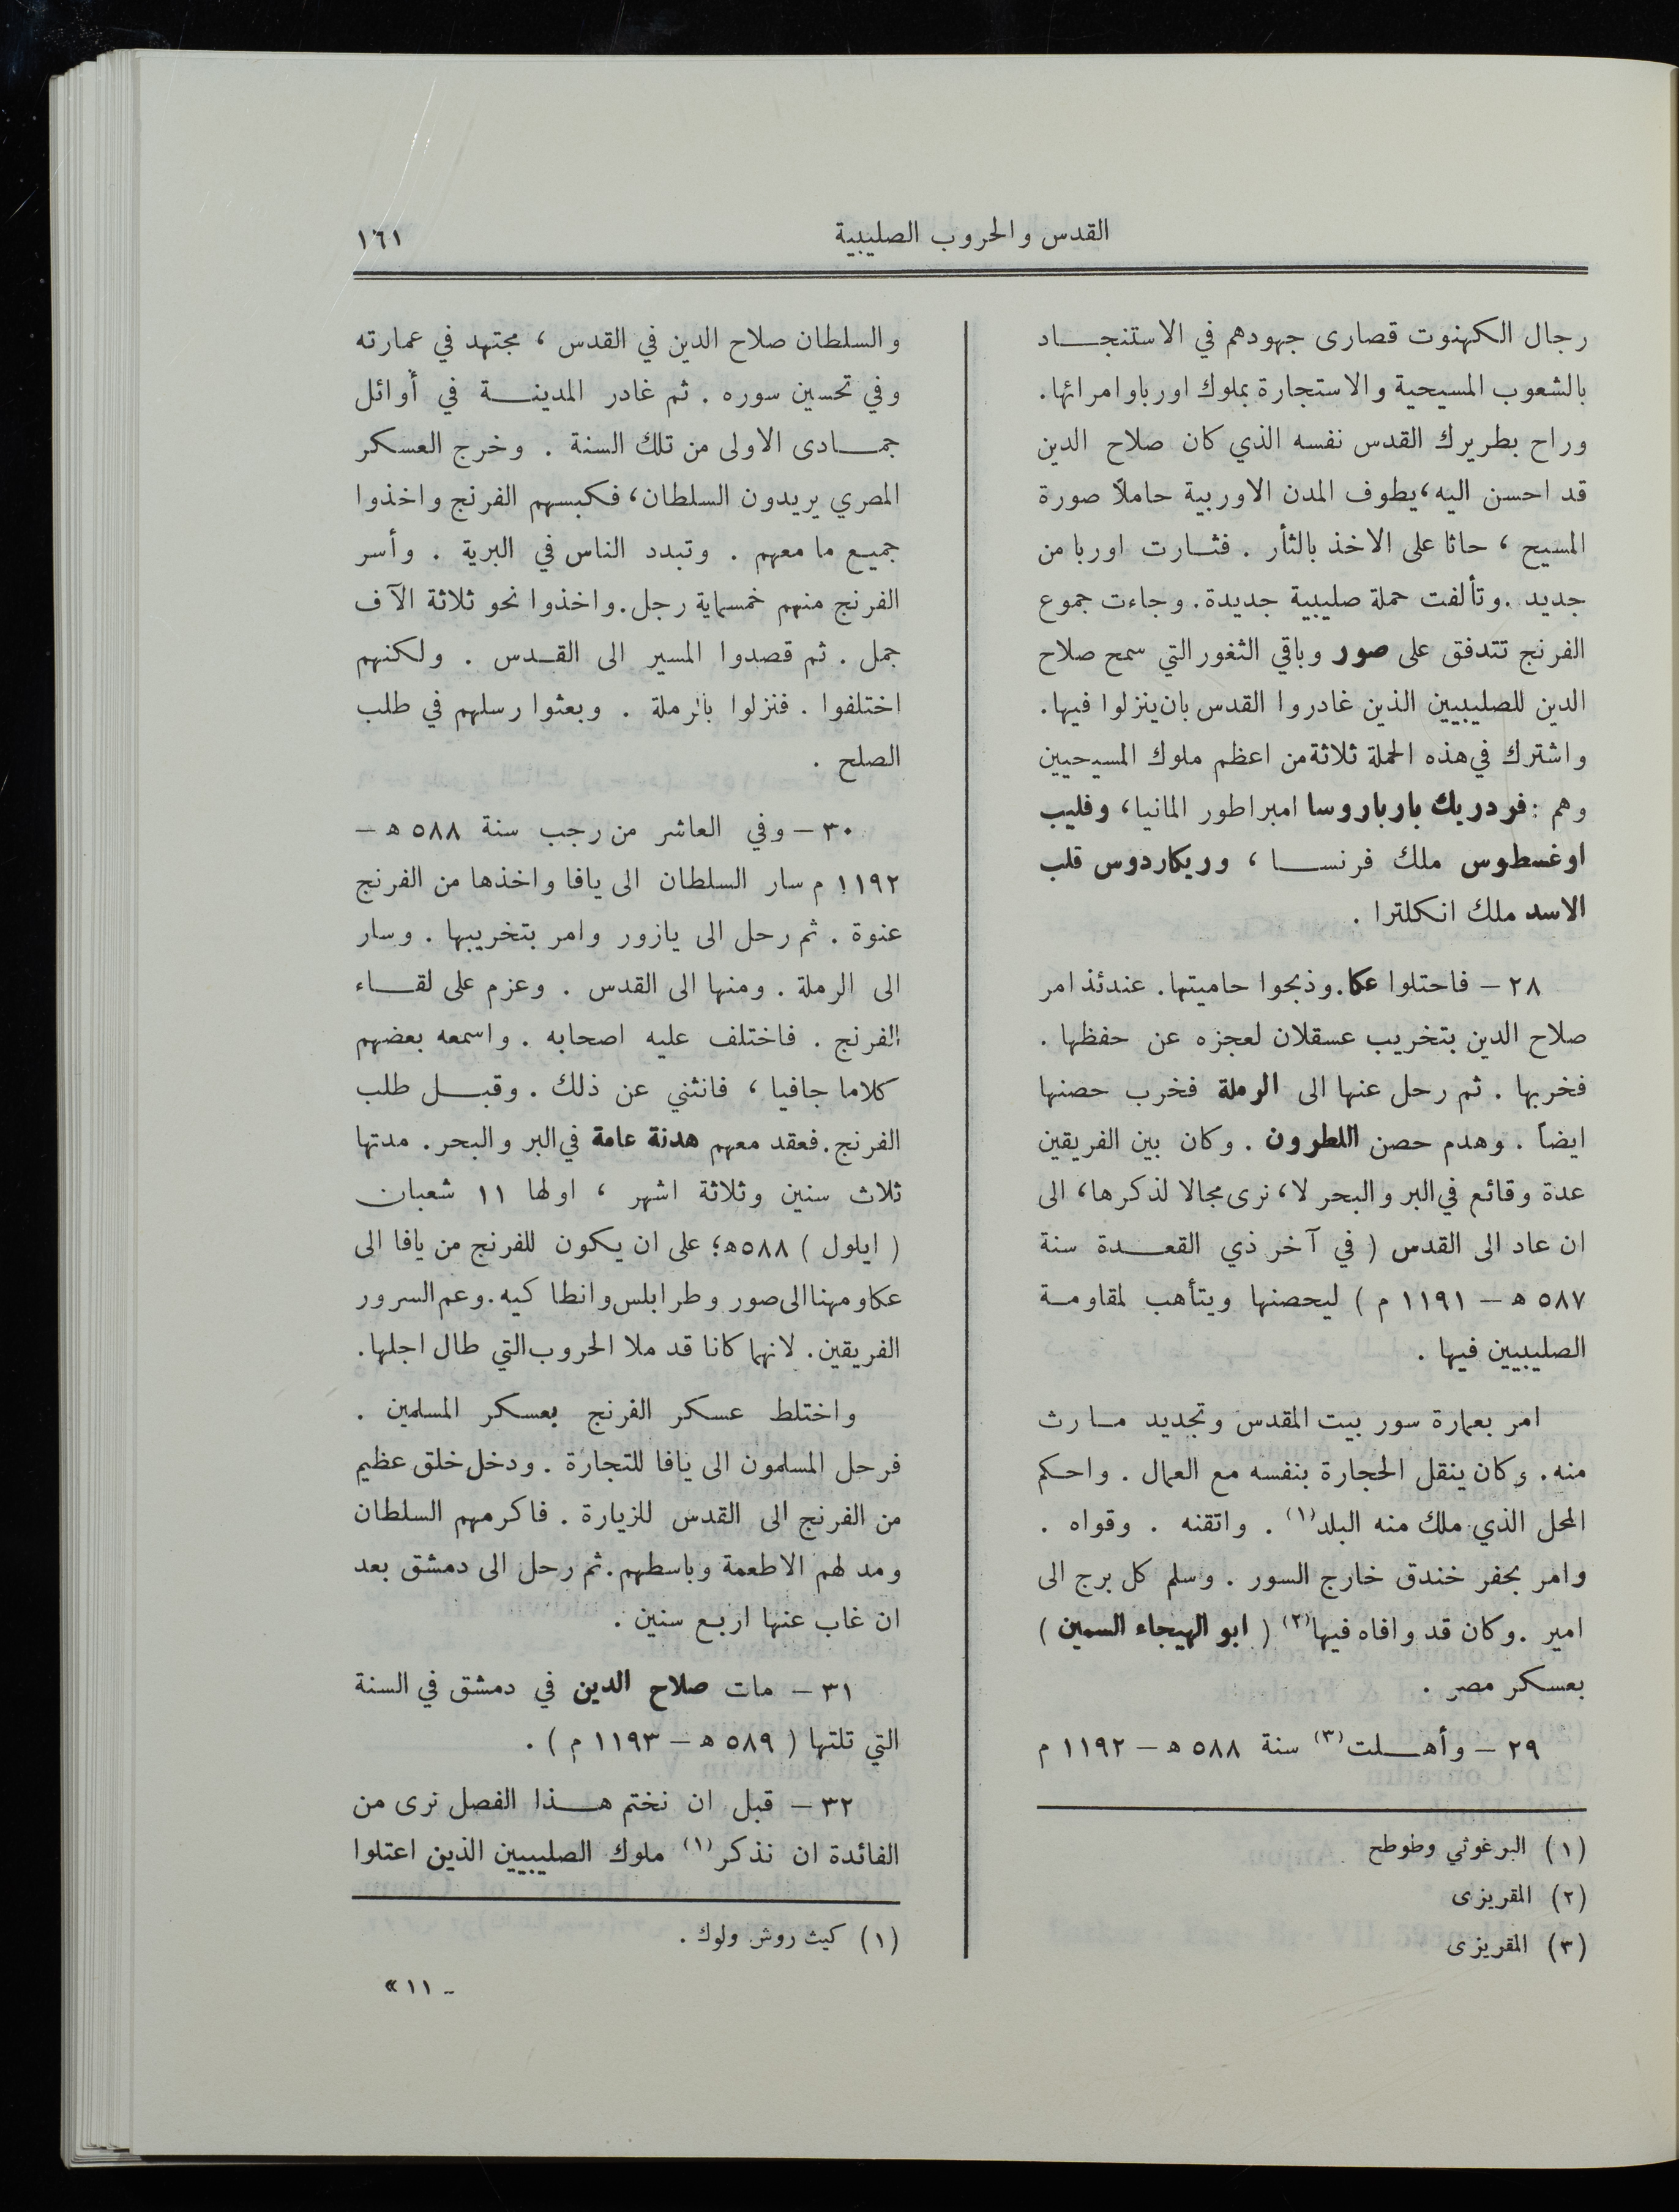 القدس والحروب الصليبية
١٦١
رجال الكهنوت قصارى جهودهم في الاستنجاد
بالشعوب المسيحية والاستجارة بملوك اوربا وامرائها.
وراح بطريرك القدس نفسه الذي كان صلاح الدين
قد احسن اليه، يطوف المدن الاوربية حاملاً صورة
المسيح ، حاثا على الاخذ بالثأر . فثارت اوربا من
جديد . وتألفت حملة صليبية جديدة. وجاءت جموع
الفرنج تتدفق على صور وباقي الثغور التي سمح صلاح
الدين للصليبيين الذين غادروا القدس بان ينزلوا فيها.
واشترك في هذه الحملة ثلاثة من اعظم ملوك المسيحيين
وهم : فردريك بارباروسا امبراطور المانيا، وفليب
اوغسطوس ملك فرنسا ، وريكاردوس قلب
الاسد ملك انكلترا .
٢٨ – فاحتلوا عكا. وذبحوا حاميتها. عندئذ امر
صلاح الدين بتخريب عسقلان لعجزه عن حفظها .
فخربها . ثم رحل عنها الى الرملة فخرب حصنها
ايضاً . وهدم حصن اللطرون . وكان بين الفريقين
عدة وقائع في البر والبحر لا، نرى مجالا لذكرها، الى
ان عاد الى القدس ( في آخر ذي القعدة سنة
٥٨٧ ه – ١١٩١ م ) ليحصنها ويتأهب لمقاومة
الصليبيين فيها .
امر بعمارة سور بيت المقدس وتجديد ما رث
منه. وكان ينقل الحجارة بنفسه مع العمال . واحكم
المحل الذي ملك منه البلد (١) . واتقنه . وقواه .
وامر بحفر خندق خارج السور . وسلم كل برج الى
امير . وكان قد وافاه فيها (٢) ( ابو الهيجاء السمين )
بعسكر مصر .
٢٩ – وأهلت (٣) سنة ٥٨٨ ه – ١١٩٢ م
(١) البرغوثي وطوطح
(٢) المقريزى
(٣) المقريزى
والسلطان صلاح الدين في القدس ، مجتهد في عمارته
وفي تحسين سوره . ثم غادر المدينة في أوائل
جمادى الاولى من تلك السنة . وخرج العسكر
المصري يريدون السلطان، فكبسهم الفرنج واخذوا
جميع ما معهم . وتبدد الناس في البرية . وأسر
الفرنج منهم خمسماية رجل. واخذوا نحو ثلاثة الآف
جمل . ثم قصدوا المسير الى القدس . ولكنهم
اختلفوا . فنزلوا بالرملة . وبعثوا رسلهم في طلب
الصلح .
٣٠ – وفي العاشر من رجب سنة ٥٨٨ ه –
١١٩٢ م سار السلطان الى يافا واخذها من الفرنج
عنوة . ثم رحل الى يازور وامر بتخريبها . وسار
الى الرملة . ومنها الى القدس . وعزم على لقاء
الفرنج . فاختلف عليه اصحابه . واسمعه بعضهم
كلاما جافيا ، فانثني عن ذلك . وقبل طلب
الفرنج. فعقد معهم هدنة عامة في البر والبحر. مدتها
ثلاث سنين وثلاثة اشهر ، اولها ١١ شعبان
( ايلول ) ٥٨٨ه؛ على ان يكون للفرنج من يافا الى
عكا ومهنا الى صور وطرابلس وانطاكيه. وعم السرور
الفريقين. لانهما كانا قد ملا الحروب التي طال اجلها.
واختلط عسكر الفرنج بعسكر المسلمين .
فرحل المسلمون الى يافا للتجارة . ودخل خلق عظيم
من الفرنج الى القدس للزيارة . فاكرمهم السلطان
ومد لهم الاطعمة وباسطهم. ثم رحل الى دمشق بعد
ان غاب عنها اربع سنين .
٣١ – مات صلاح الدين في دمشق في السنة
التي تلتها ( ٥٨٩ ه – ١١٩٣ م ) .
٣٢ – قبل ان نختم هذا الفصل نرى من
الفائدة ان نذكر (١) ملوك الصليبيين الذين اعتلوا
(١) كيث روش ولوك .
- ١١ »